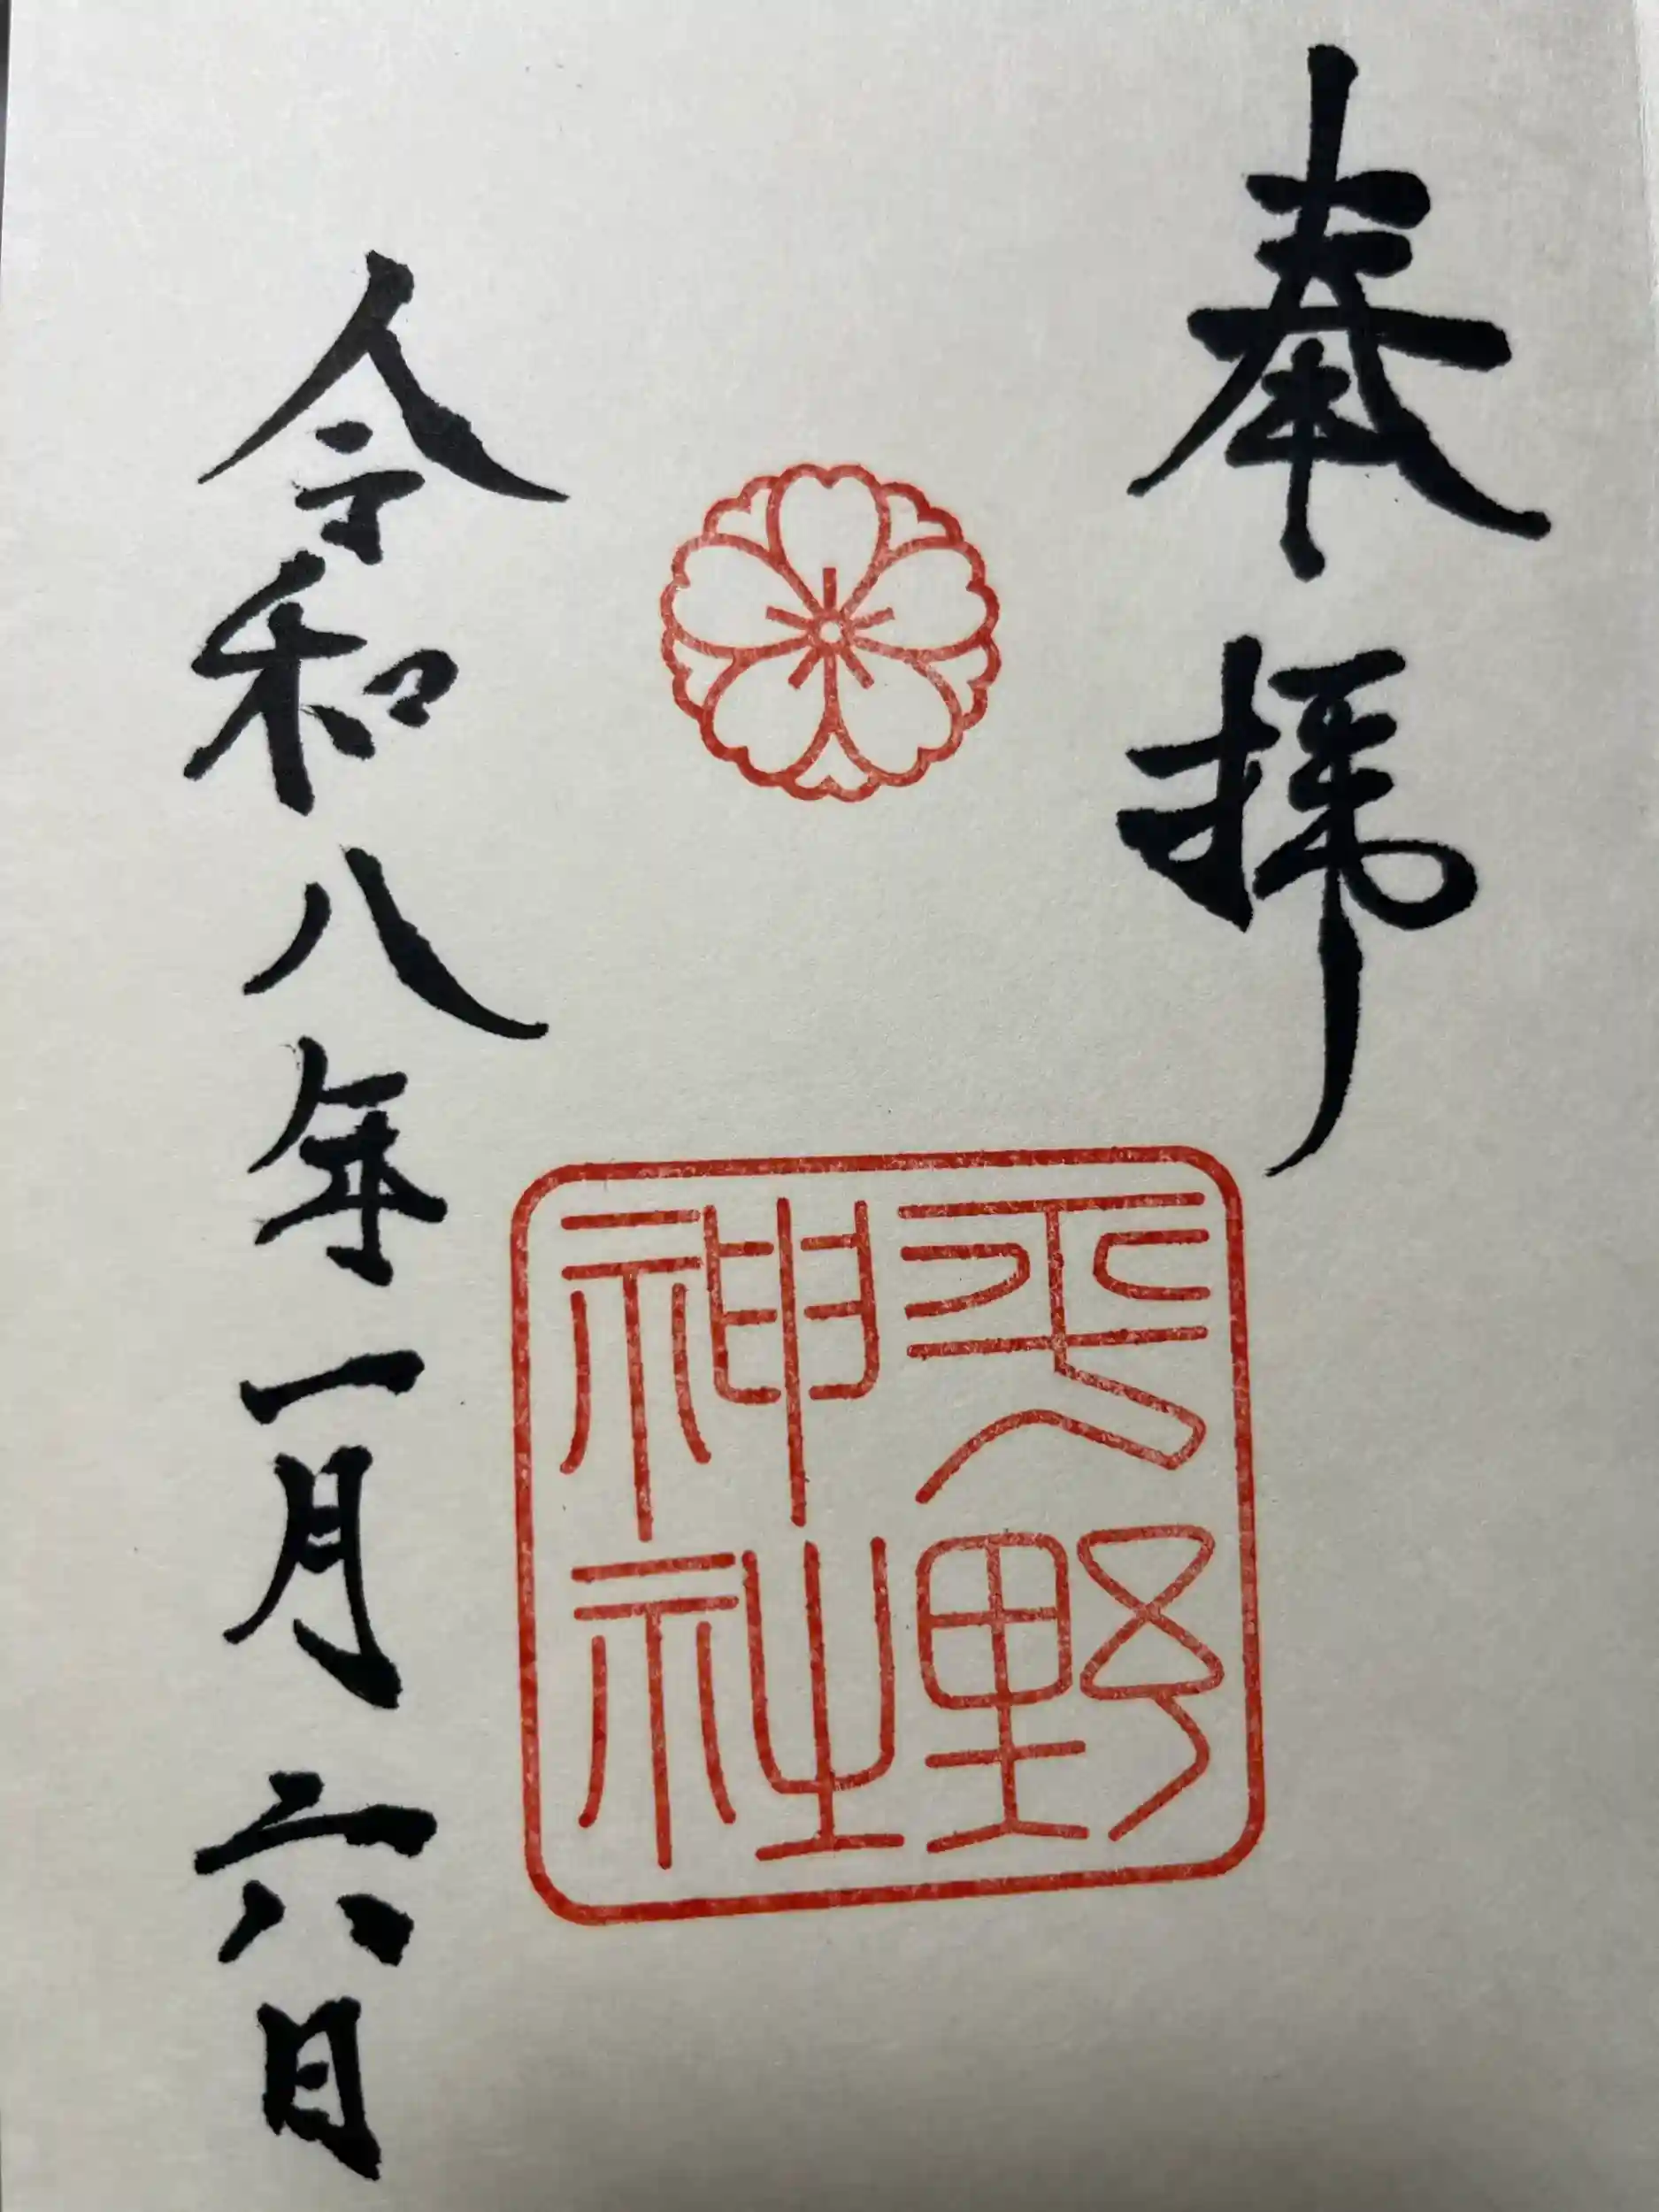 奉拝
平野神社
令和八年一月六日